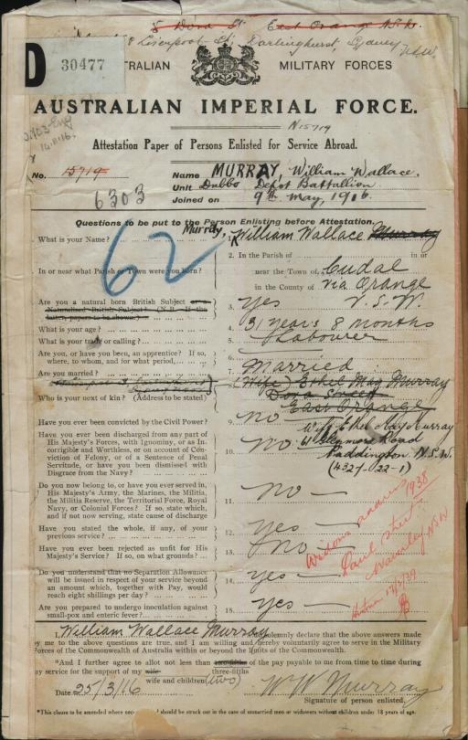 5 Dora St East Orange N.S.W.
Liverpool St, Darlinghurst, Sydney NSW
D 30477
AUSTRALIAN MILITARY FORCES
AUSTRALIAN IMPERIAL FORCE.
N15719
Attestation Paper of Persons Enlisted for Service Abroad.
No. 15719 Name MURRAY, William Wallace.
6303 Unit Dubbo Depot Battallion
Joined on 9th May, 1916
Questions to be put to the Person Enlisting before Attestation.
62
What is your Name? Murray, William Wallace Murray
In or near what Parish or Town were you born? 2. In the Parish of in or
near the Town of Cudal
in the County of Via Orange
N.S.W.
Are you a natural born British Subject 3. Yes
What is your age? 4. 31 years 8 months
What is your trade or calling? 5. Labourer
Are you, or have you been, an apprentice? If so, 6.
where, to whom, and for what period
Are you married? 7. Married
(Wife) Ethel May Murray
Who is your next of kin? (Address to be stated) Dora Street
East Orange
Have you ever been convicted by the Civil Power? 9. No Wife Ethel May Murray
Have you ever been discharged from any part of 10. No Road
His Majesty's Forces, with Ignominy, or as In- Paddington N.S.W.
corrigible and Worthless, or on account of Con-
viction of Felony, or of a Sentence of Penal
Servitude, or have you been dismissed with
Disgrace from the Navy?
Do you now belong to, or have you ever served in, 11. No
His Majesty's Army, the Marines, the Militia,
the Militia Reserve, the Territorial Force, Royal
Navy, or Colonial Forces? If so, state which,
and if not now serving, state cause of discharge
Have you stated the whole, if any, of your 12. Yes
previous service?
Have you ever been rejected as unfit for His 13. No
Majesty's Service? If so, on what grounds?
Do you understand that no Separation Allowance 14. Yes
will be issued in respect of your service beyond
an amount which, together with Pay, would
reach eight shillings per day?
Are you prepared to undergo inoculation against 15. Yes
small-pox and enteric fever?
1938
Waverley NSW
I William Wallace Murray solemnly declare that the above answers made
by me to the above questions are true, and I am willing and hereby voluntarily agree to serve in the Military
Forces of the Commonwealth of Australia within or beyond the limits of the Commonwealth.
*And I further agree to allot not less than of the pay payable to me from time to time during
three-fifths
my service for the support of my wife
wife and children (two)
Date 25/3/16 W W Murray
Signature of person enlisted.
*This clause to be amended where necessary and should be struck out in the case of unmarried men or widowers without children under 18 years of age.